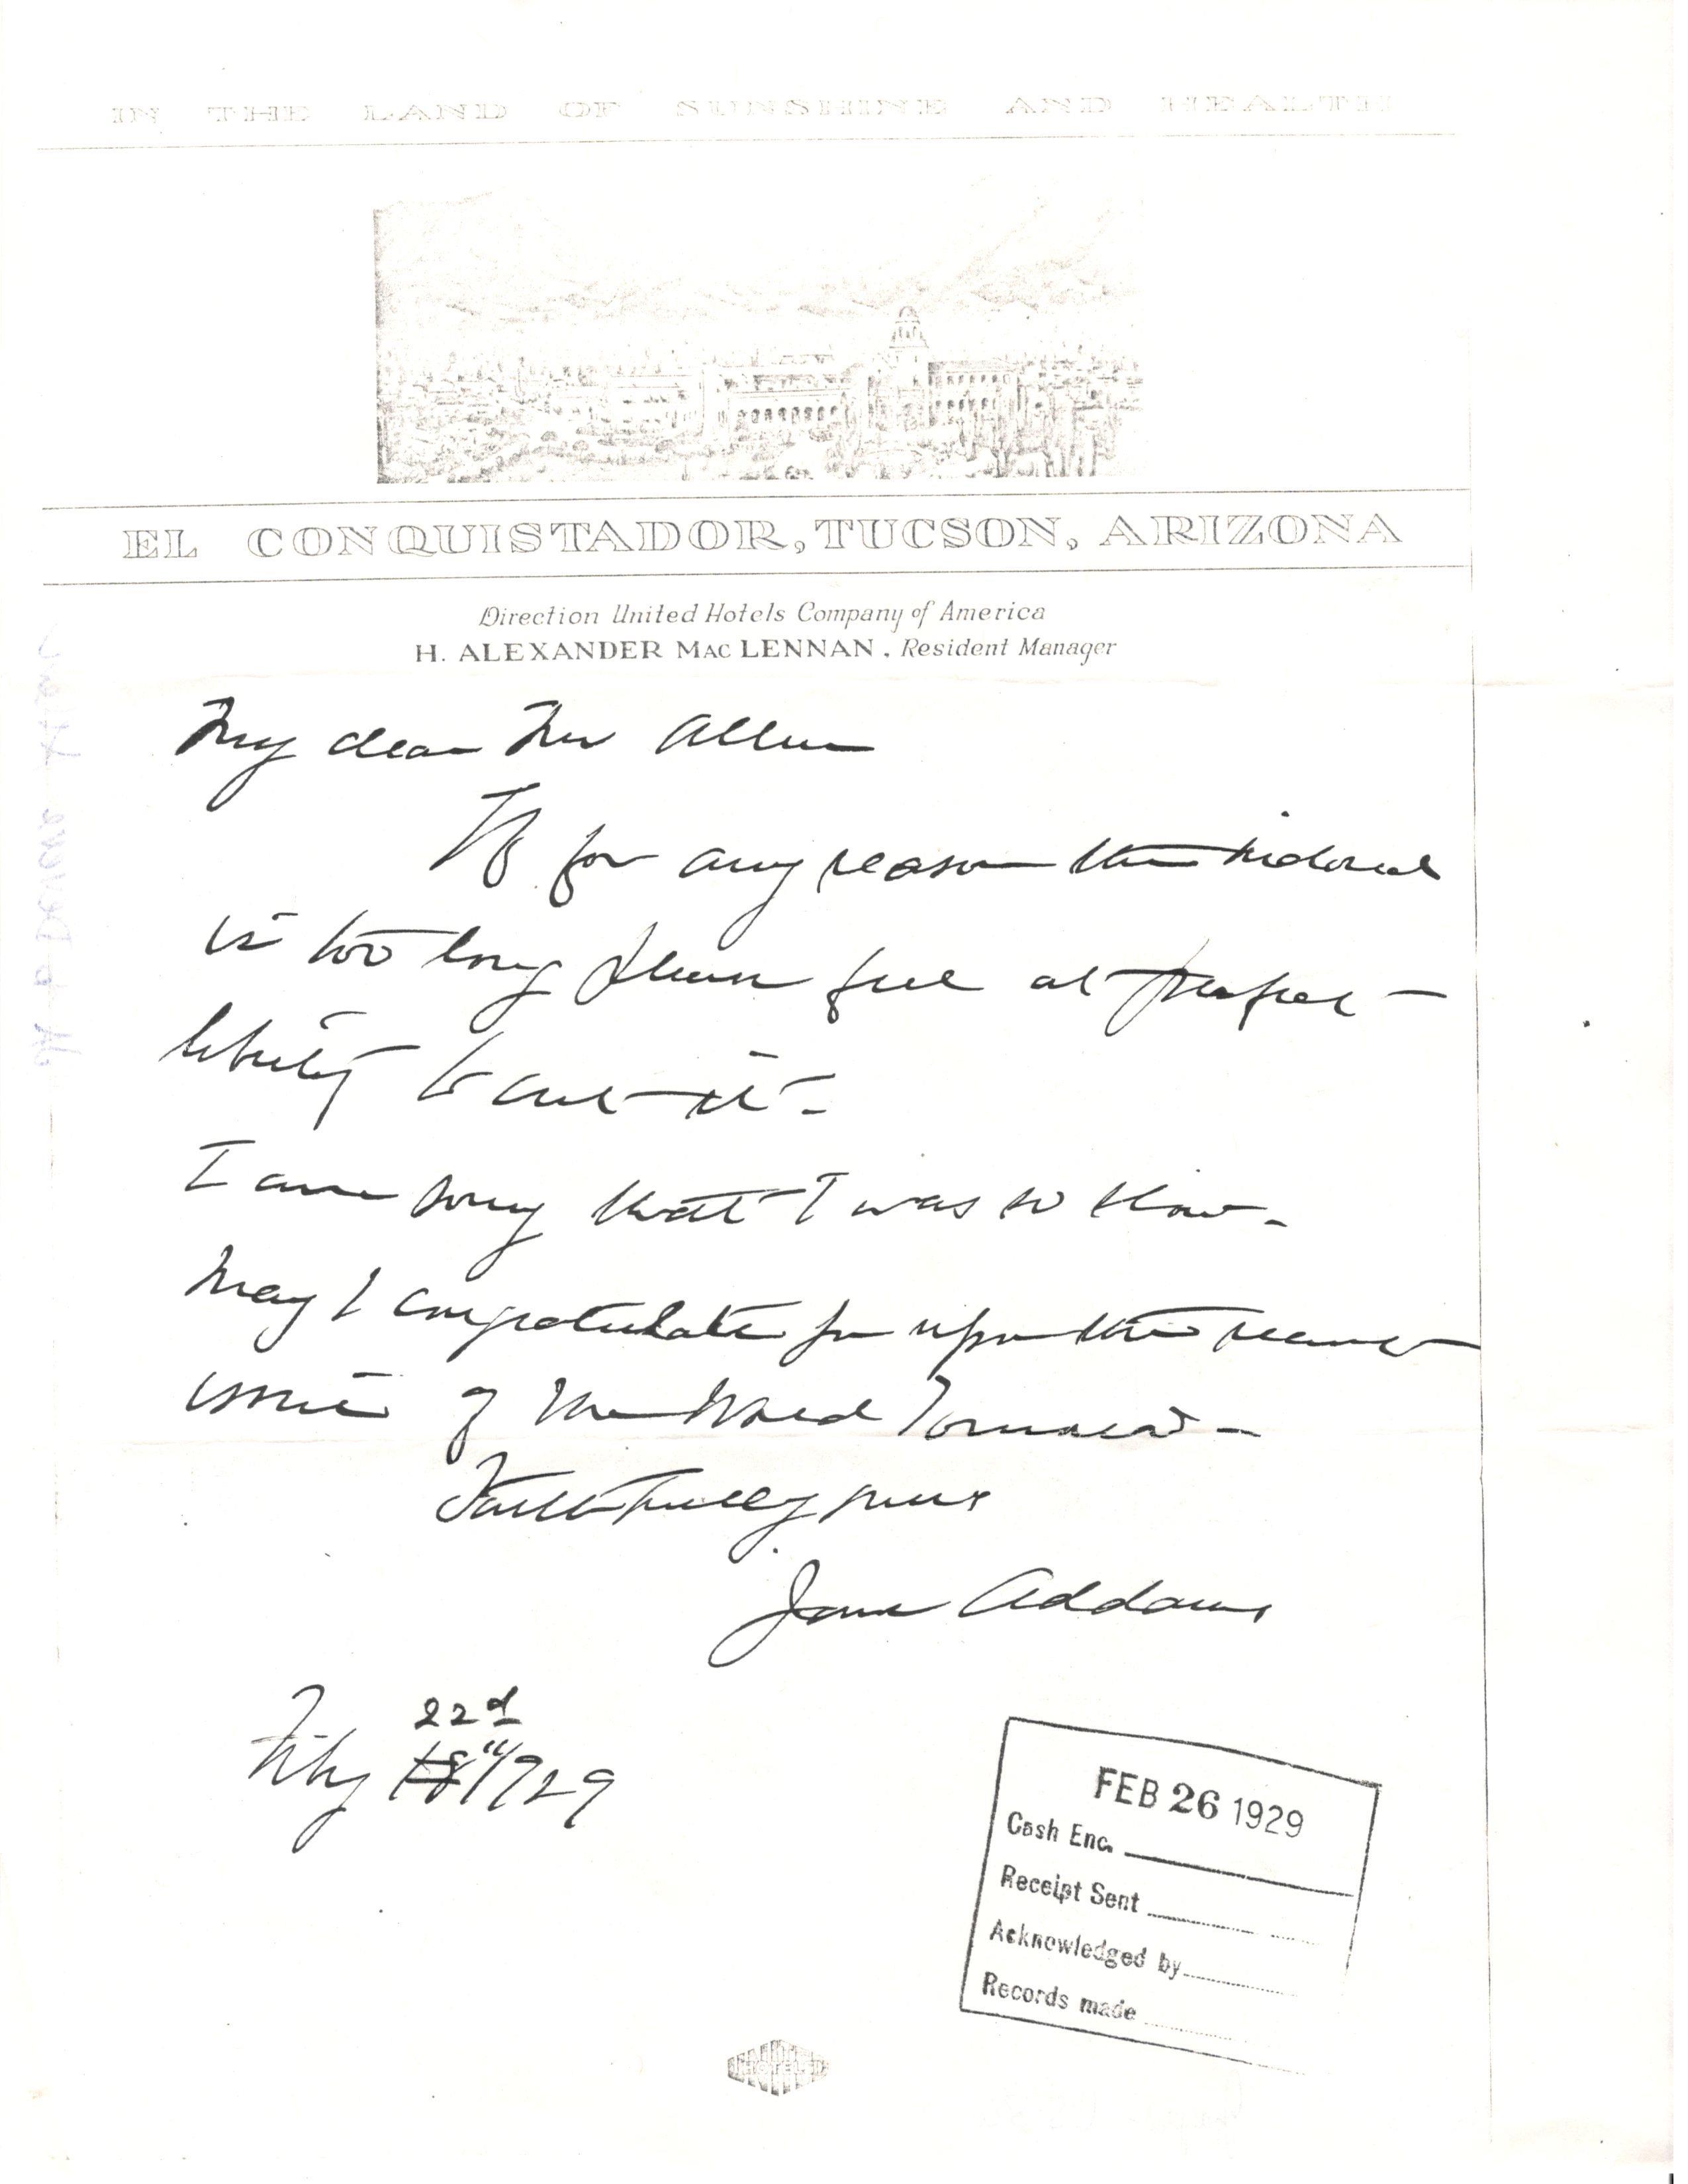 IN THE LAND OF SUNSHINE AND HEALTH
EL CONQUISTADOR, TUCSON, ARIZONA
Direction United Hotels Company of America
H. ALEXANDER MAC LENNAN, Resident Manager
My dear Mr Allen
If for any reason the
is too long please feel at perfect
liberty to cut it -
I am sorry that I was so slow -
May I congratulate you upon the recent
issue of the World Tomorrow -
Faithfully yours
Jane Addams
22d
Feby 18" 1929
FEB 26 1929
Cash Enc.
Receipt Sent
Acknowledged by
Records made
HOTELS